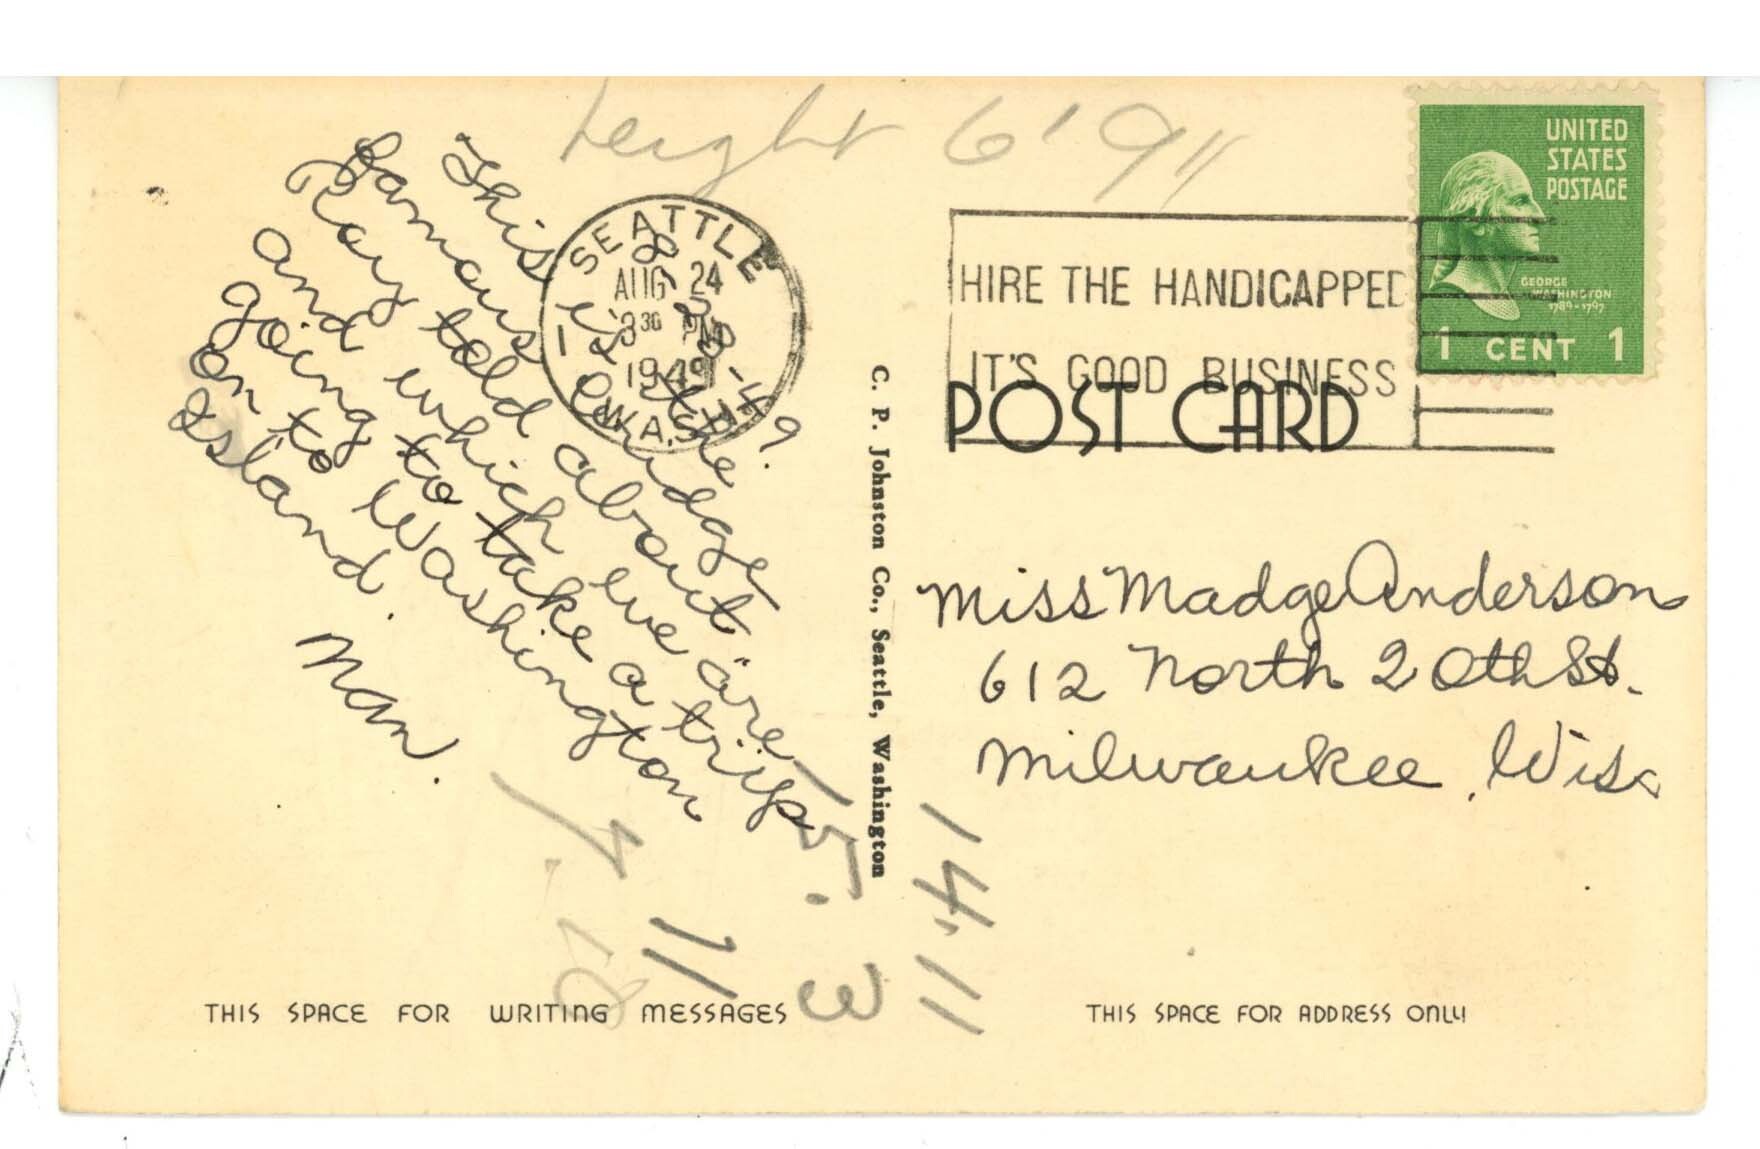 height 6' 9"
8-23-49.
This is the
Famous bridge
Ray told about
and which we are
going to take a trip
on to Washington
Island.
SEATTLE
AUG 24
3 30 PM
1949
WASH.
1
HIRE THE HANDICAPPED
IT'S GOOD BUSINESS
UNITED
STATES
POSTAGE
GEORGE
WASHINGTON
1789-1797
1 CENT 1
POST CARD
C. P. Johnston Co., Seattle, Washington
Miss Madge Anderson
612 North 20th St.
Milwaukee, Wis.
15.3
14.11
11
THIS SPACE FOR WRITING MESSAGES
THIS SPACE FOR ADDRESS ONLY